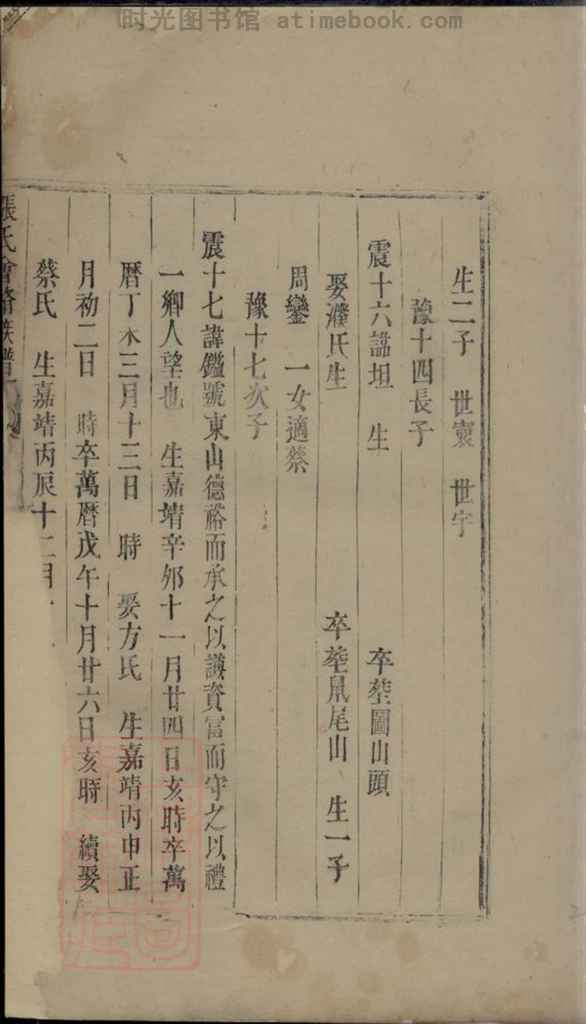 时光图书馆 - atimebook.com
生二子 世寰 世宇
豫十四長子
震十六諱坦 生 卒塟圖山頭
娶濮氏生 卒塟鼠尾山 生一子
周鑾 一女適蔡
豫十七次子
震十七諱鑑號東山德裕而承之以謙資富而守之以禮
一鄉人望也 生嘉靖辛夘十一月廿四日亥時卒萬
曆丁未三月十三日 時 娶方氏 生嘉靖丙申正
月初二日 時卒萬曆戊午十月廿六日亥時 續娶
蔡氏 生嘉靖丙辰十二月
張氏會脩族譜